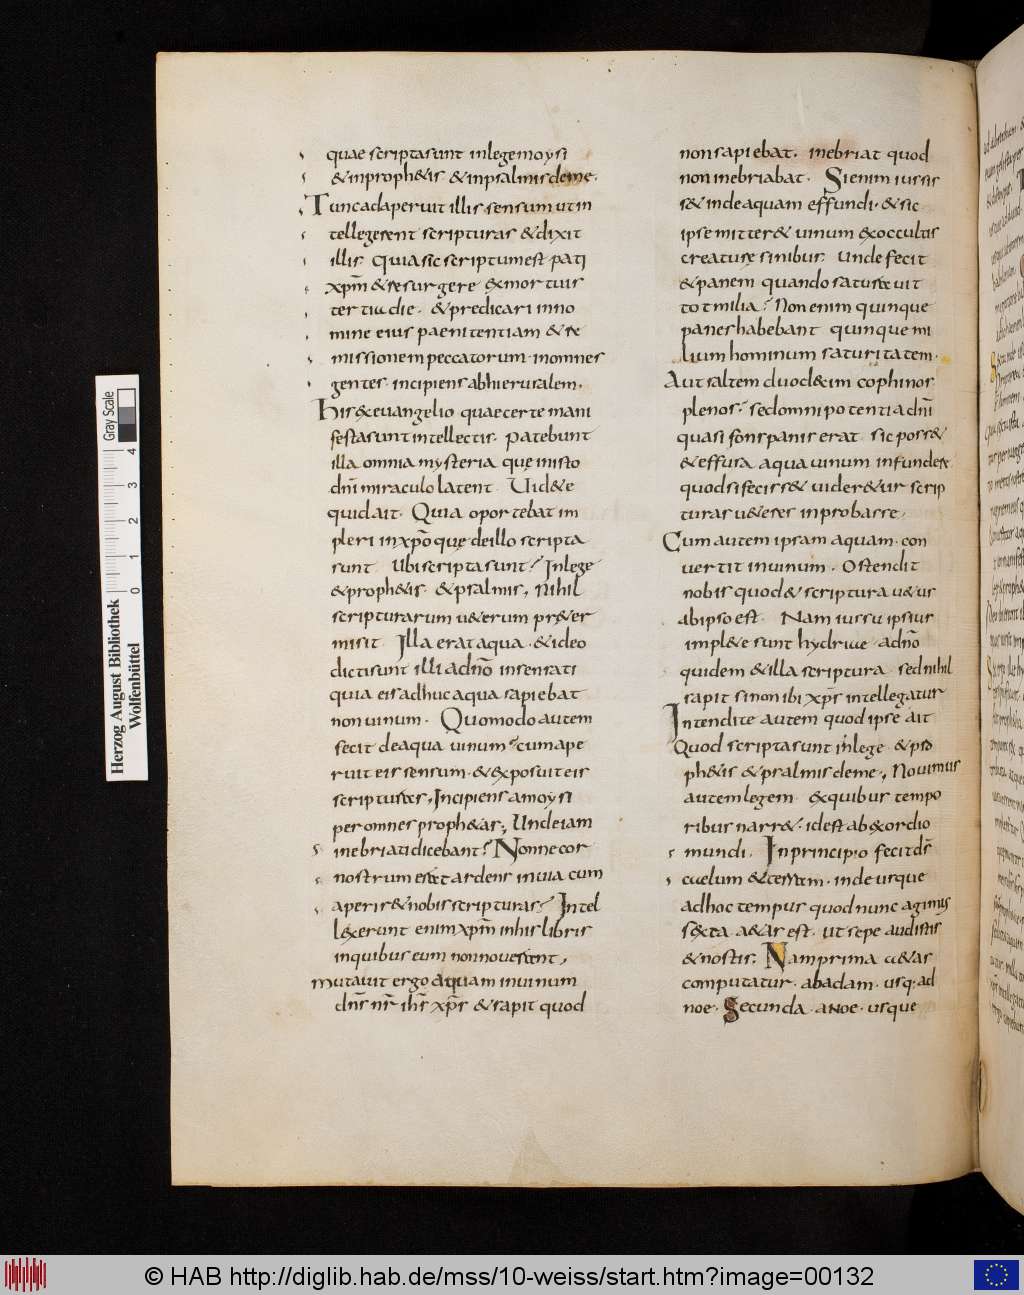 quae scripta sunt in lege moysi
& in proph&is & in psalmis de me.
Tunc adaperuit illis sensum ut in
tellegerent scripturas & dixit
illis. Quia sic scriptum est pati
xp̄m & resurgere exmortuis
tertiu die. & predicari in no
mine eius paenitentiam & re
missionem peccatorum. in omnes
gentes. incipiens ab hierusalem.
His & euangelio quae certe mani
festa sunt intellectis. patebunt
illa omnia mysteria quę in isto
dn̄i miraculo latent. Uid&e
quid ait. Quia oportebat im
pleri in xp̄o quę de illo scripta
sunt. Ubi scripta sunt? In lege
& proph&is. & psalmis. Nihil
scripturarum u&erum pr&er
misit. Illa erat aqua. & ideo
dicti sunt illi a dn̄o insensati
quia eis adhuc aqua sapiebat
non uinum. Quomodo autem
fecit de aqua uinum? cum ape
ruit eis sensum. & exposuit eis
scripturas, Incipiens a moysi
per omnes proph&as; Unde iam
inebriati dicebant? Nonne cor
nostrum erat ardens in uia cum
aperir& nobis scripturas? Intel
lexerunt enim xp̄m in his libris
in quibus eum non nouerant,
mutauit ergo aquam in uinum
dn̄s nr̄ ih̄s xp̄s & sapit quod
non sapiebat. inebriat quod
non inebriabat. Si enim iussis
s& inde aquam effundi. & sic
ipse mitter& uinum ex occultis
creaturę sinibus. Unde fecit
& panem quando saturauit
tot milia? Non enim quinque
panes habebant quinque mi
lium hominum saturitatem.
Aut saltem duod&im cophinos
plenos? sed omnipotentia dn̄i
quasi fons panis erat. sic poss&
& effusa aqua uinum infundere
quod si feciss& uider&ur scrip
turas u&eres inprobasse.
Cum autem ipsam aquam. con
uertit in uinum. Ostendit
nobis quod & scriptura u&us
ab ipso est. Nam iussu ipsius
impl&e sunt hydriae. a dn̄o
quidem & illa scriptura. sed nihil
sapit si non ibi xp̄s intellegatur
Intendite autem quod ipse ait
Quod scripta sunt in lege & pro
ph&is & psalmis de me. Nouimus
autem legem. ex quibus tempo
ribus narr&. id est ab exordio
mundi. In principio fecit ds̄
caelum & terram. inde usque
ad hoc tempus quod nunc agimus
sexta a&as est. ut sepe audistis
& nostis. Nam prima a&as
computatur. ab adam. usq; ad
noe. Secunda. a noe. usque
Herzog August Bibliothek
Wolfenbüttel
Gray Scale
0 1 2 3 4
© HAB http://diglib.hab.de/mss/10-weiss/start.htm?image=00132